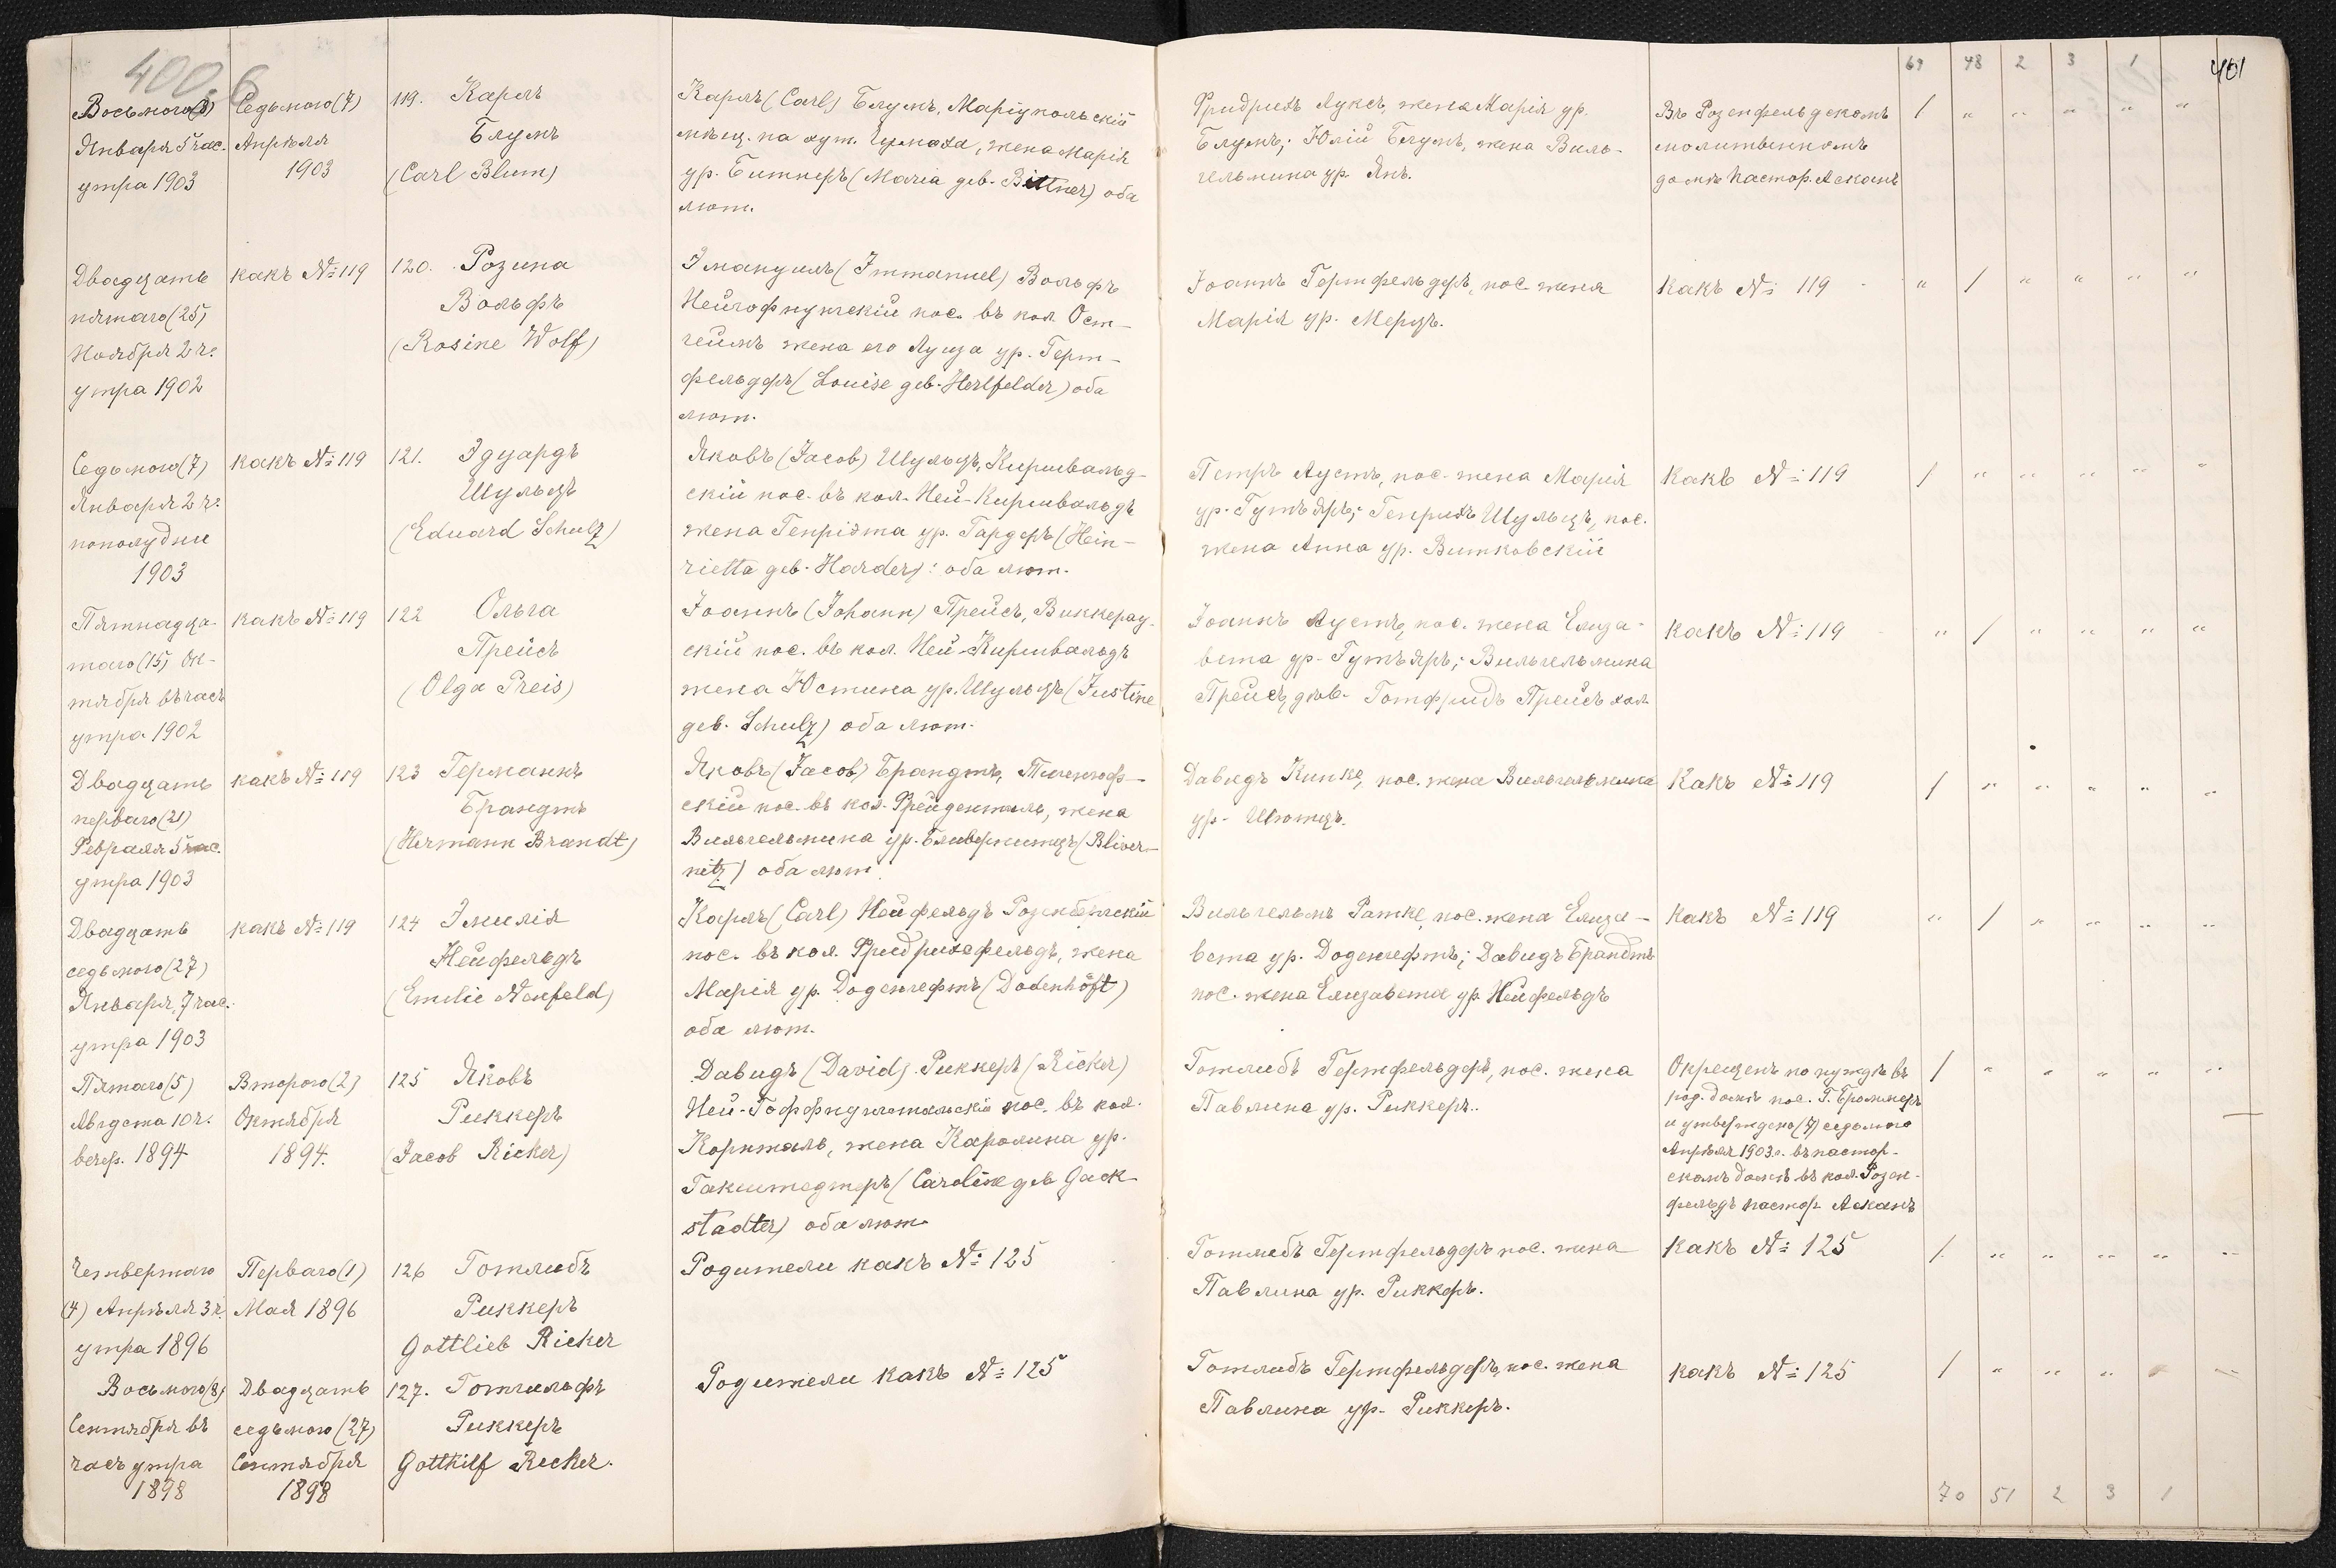 400 б
69 48 2 3 1 401
Восьмого(8)
Января 5 час.
утра 1903
Седьмого(7)
Апрѣля
1903
119. Карлъ
Блумъ
(Carl Blum)
Карлъ (Carl) Блумъ, Маріупольскій
мѣщ. на хут. жена Марія
ур. Битнеръ (Maria geb. Bittner) оба
лют.
Фридрихъ Луксъ, жена Марія ур.
Блумъ; Юлій Блумъ, жена Виль-
гельмина ур. Янъ.
Въ Розенфельдскомъ
молитвенномъ
домѣ пастор. Асканъ
/ " " " " "
Двадцать
пятаго (25)
Ноября 2 ч.
утра 1902
какъ №119
120. Розина
Вольфъ
(Rosine Wolf)
Имануилъ (Immanuel) Вольфъ
пос. въ кол. Ост-
геймъ жена его Луиза ур. Герт-
фельдеръ (Louise geb. Hertfelder) оба
лют.
Іоаннъ Гертфельдеръ, пос. жена
Марія ур. Мерцъ.
какъ № 119
" / " " " "
Седьмого (7)
Января 2 ч.
пополудни
1903
какъ №119
121. Эдуардъ
Шульцъ
(Eduard Schulz)
Яковъ (Jacob) Шульцъ, Киршвальд-
скій пос. въ кол. Ней-Киршвальдъ
жена Генріэта ур. Гардеръ (Hein-
rietta geb. Harder): оба лют.
Петръ Аустъ, пос. жена Марія
ур. Гутъяръ; Генрихъ Шульцъ, пос.
жена Анна ур. Витковскій
какъ № 119
/ " " " " "
Пятнадца-
таго (15) Ок-
тября въ часъ
утра 1902
какъ №119
122 Ольга
Прейсъ
(Olga Preis)
Іоаннъ (Johann) Прейсъ, Виккерау-
скій пос. въ кол. Ней-Киршвальдъ
жена Юстина ур. Шульцъ (Justine
geb. Schulz) оба лют.
Іоаннъ Аустъ, пос. жена Елиза-
вета ур. Гутъяръ; Вильгельмина
Прейсъ, дѣв. Готфридъ Прейсъ хол.
какъ № 119
" / " " " "
Двадцать
перваго (21)
Февраля 5 час.
утра 1903
какъ №119
123 Германнъ
Брандтъ
(Hermann Brandt)
Яковъ (Jacob) Брандтъ, Тигенгоф-
скій пос. въ кол. Фрейденталь, жена
Вильгельмина ур. Бливерницъ (Bliver-
nitz) оба лют.
Давидъ Кинке, пос. жена Вильгельмина
ур. Штотцъ.
какъ № 119
/ " " " " "
Двадцать
седьмого (27)
Января, 7 час.
утра 1903
какъ №119
124 Эмилія
Нейфельдъ
(Emilie Neufeld)
Карлъ (Carl) Нейфельдъ Розенбергскій
пос. въ кол. Фридрихсфельдъ, жена
Марія ур. Доденгефтъ (Dodenhöft)
оба лют.
Вильгельмъ Ратке, пос. жена Елиза-
вета ур. Доденгефтъ; Давидъ Брандтъ
пос. жена Елизавета ур. Нейфельдъ
какъ № 119
" / " " " "
Пятаго (5)
Августа 10 ч.
вечер. 1894
Второго (2)
Октября
1894.
125 Яковъ
Риккеръ
(Jacob Ricker)
Давидъ (David) Риккеръ (Ricker)
Ней-Гоффнунгстальскій пос. въ кол.
Корнталь, жена Каролина ур.
Гакштедтеръ (Caroline geb Gack-
stadter) оба лют.
Готлибъ Гертфельдеръ, пос. жена
Павлина ур. Риккеръ.
Окрещенъ по нуждѣ въ
род. домѣ пос. Г. Броммеръ
и утверждено (7) седьмого
Апрѣля 1903 г. въ пастор-
скомъ домѣ въ кол. Розен-
фельдъ пастор Асканъ
/ " " " " "
Четвертаго
(4) Апрѣля 3 ч.
утра 1896
Перваго (1)
Мая 1896
126 Готлибъ
Риккеръ
Gottlieb Ricker
Родители какъ № 125
Готлибъ Гертфельдеръ пос. жена
Павлина ур. Риккеръ.
какъ № 125
/ " " " " "
Восьмого (8)
Сентября въ
часъ утра
1898
Двадцать
седьмого (27)
Сентября
1898
127. Готгильфъ
Риккеръ
Gotthilf Ricker.
Родители какъ № 125
Готлибъ Гертфельдеръ, пос. жена
Павлина ур. Риккеръ.
какъ № 125
/ " " " " "
70 51 2 3 1